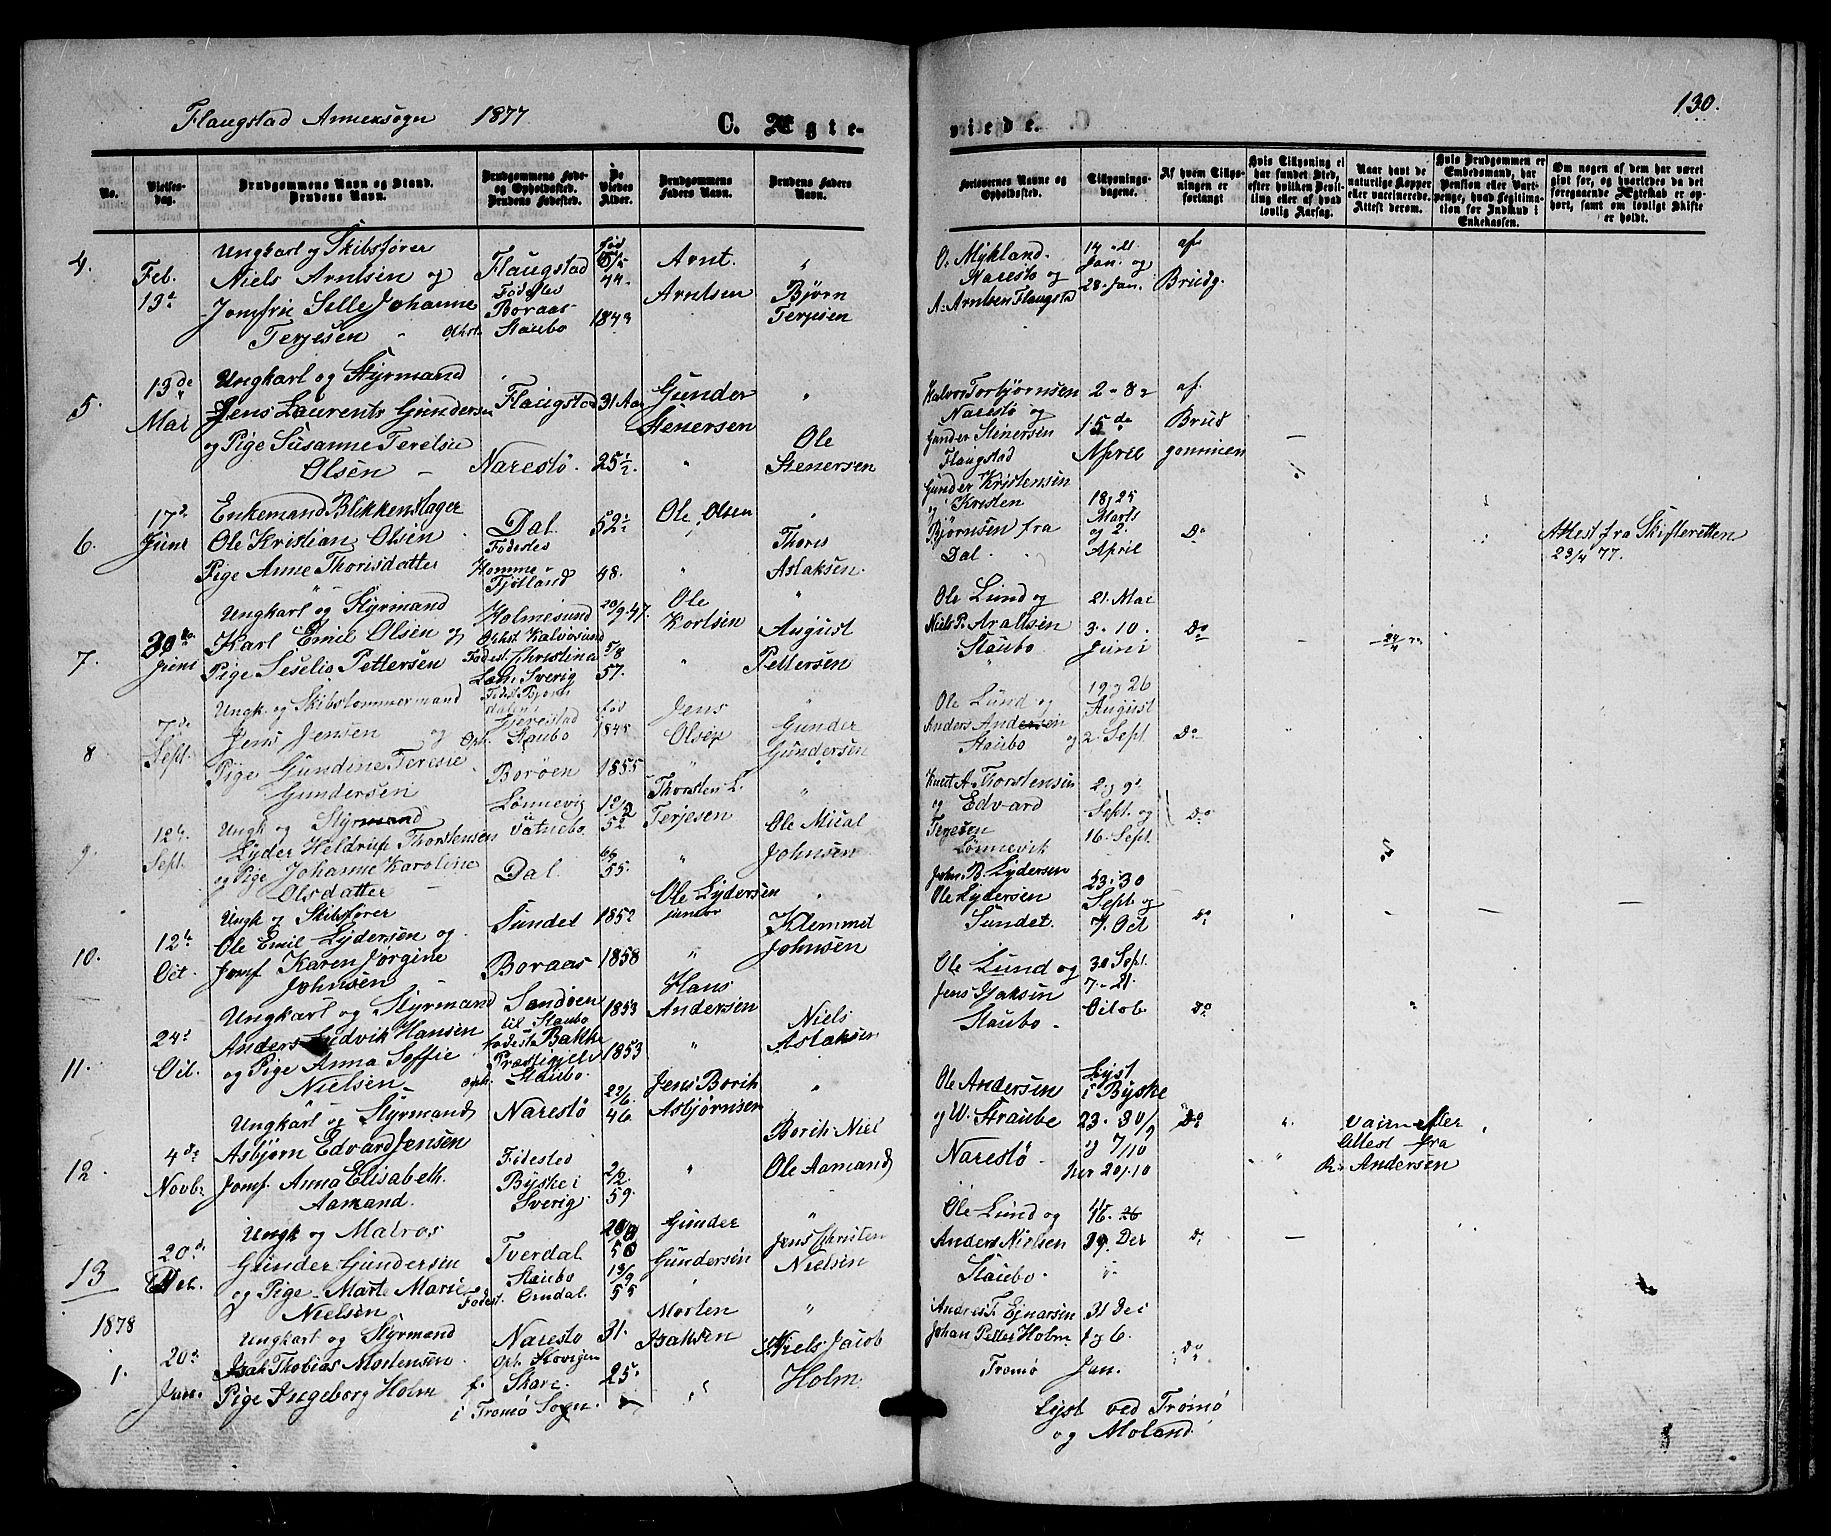 Flaugstad Annexsogn 1877
C. Ægte-
viede.
130.
No.
Vielses-
dag.
Brudgommens Navn og Stand.
Brudens Navn.
Brudgommens Føde-
og Opholdssted.
Brudens Fødested.
De
Viedes
Alder.
Brudgommens
Faders Navn.
Brudens Faders
Navn.
Forlovernes Navne og
Opholdssted.
Tillysnings-
dagene.
Af hvem Tillys-
ningen er
forlangt
Hvis Tillysning ei
har fundet Sted,
efter hvilken Bevil-
ling eller af hvad
lovlig Aarsag.
Naar havt de
naturlige Kopper
eller vaccinerede.
Attest derom.
Hvis Brudgommen er
Embedsmand, har
Pension eller Vart-
penge, hvad Legitima-
tion for Indskud i
Enkekassen.
Om nogen af dem har været
gift før, og hvorledes da det
foregaaende Ægteskab er op-
hørt, samt om lovligt Skifte
er holdt.
4.
Feb.
13de
Ungkarl og Skibsfører
Niels Arntsen og
Jomfru Sille Johanne
Terjesen
Flaugstad
Fødested
Boraas
Opht. Staubo
fød
44.
1843
Arnt
Arntsen
"
Bjørn
Terjesen
O. Mykland
Narestø og
A. Arntsen Flaugstad
14 - 21
Jan. og
28. Jan.
af
Brudg.
5.
13de
Mai
Ungkarl og Styrmand
Jens Laurents Gundersen
og Pige Susanne Terelsie
Olsen
Flaugstad
Narestø.
31 Aar
25 1/2
Gunder
Stenersen
"
Ole
Stenersen
Halvor Torbjørnsen
Narestø og
Gunder Stenersen
Flaugstad
2 - 8 -
15de
April
af
Brud
gommen
6.
17de
Juni
Enkemand Blikkenslager
Ole Kristian Olsen
Pige Anne Thorisdatter
Dal
Fødested
Homme
Fjotland
52
48.
Ole Olsen
"
Thoris
Aslaksen.
Gunder Kristensen
og Kristen
Bjørnsen fra
Dal
18, 25
Marts
og 2
April
Do
Attest fra Skifteretten
23/4 77.
7.
30te
Juni
Ungkarl og Styrmand
Karl Emil Olsen og
Pige Seselia Pettersen
Holmesund
Opht Kalvøsund
Fødest Christina
Læn Sverig
20/9.47.
5/8
57.
Ole
Korlsen
"
August
Pettersen
Ole Lund og
Niels P. Araltsen
Staubo
21. Mai
3. 10.
Juni
Do
8
7de
Sept.
Ungk. og Skibstømmermand
Jens Jensen og
Pige Gundine Teresie
Gundersen
Født Bjorn
dalen i
Gjerestad
Oph. Staubo
Borøen
fød
1845
1855
Jens
Olsen
"
Gunder
Gundersen
Ole Lund og
Anders Andersen
Staubo
19 og 26
August
og 2. Sept
Do
9.
12te
Sept.
Ungk og Styrmand
Lyder Heldrup Thorstensen
og Pige Johanne Karoline
Olsdatter
Lønnevig
Vatnebo
Dal.
52
55.
Thorsten L.
Terjesen
"
Ole Mical
Johnsen
Knett A. Thorstensen
og Edvard
Terjesen
Lønnevik
2 og 9de
Sept. og
16. Sept.
Do
10.
12te
Oct.
Ungk og Skibsfører
Ole Emil Lydersen og
Jomf Karen Jørgine
Johnsen
Sundet
Boraas
1852
1858
Ole Lydersen
junior
"
Klemmet
Johnsen
John. B. Lydersen
Ole Lydersen
Sundet.
23. 30
Sept. og
7. Oct
Do
11.
24de
Oct.
Ungkarl og Styrmand
Anders Ludvik Hansen
og Pige Anna Soffie
Nielsen
Sandøen
til Staubo
Fødested Bakke
Præstegjeld
Oph. Staubo.
1853
1853
Hans
Andersen
"
Niels
Aslaksen
Ole Lund og
Jens Isaksen
Staubo
30 Sept.
7 - 21.
Octob
Do
12.
4de
Novb.
Ungkarl og Styrmand
Asbjørn Edvard Jensen
Jomf. Anna Elisabeth
Aamand.
Narestø
Fødested
Byske i
Sverig
22/6
46
59.
Jens Borik
Asbjørnsen
"
Ole Aamand
Ole Andersen
og W. Straube
Narestø
Lyst
i Byske
23. 30/9
og 7/10
her 20/10
Do
R. Andersen
13
20de
Ungk og Matros
Gunder Gundersen
og Pige Marte Marie
Nielsen
Tverdal.
Staubo
13/9
55
Gunder
Gundersen
"
Jens Christen
Nielsen
Ole Lund og
Anders Nielsen
Staubo.
Do
1878
1.
20de
Jan.
Ungkarl og Styrmand
Isak Thobias Mortensen.
Pige Ingeborg Holm
Narestø
Skare
i Tromø Sogn.
31.
25.
Morten
Isaksen
"
Niels Jacob
Holm.
Andreas T. Ejnarsen
Johan Petter Holm
Tromø
31 Dec
og 6.
Jan.
Do
Lyst ved Tromø
og Moland